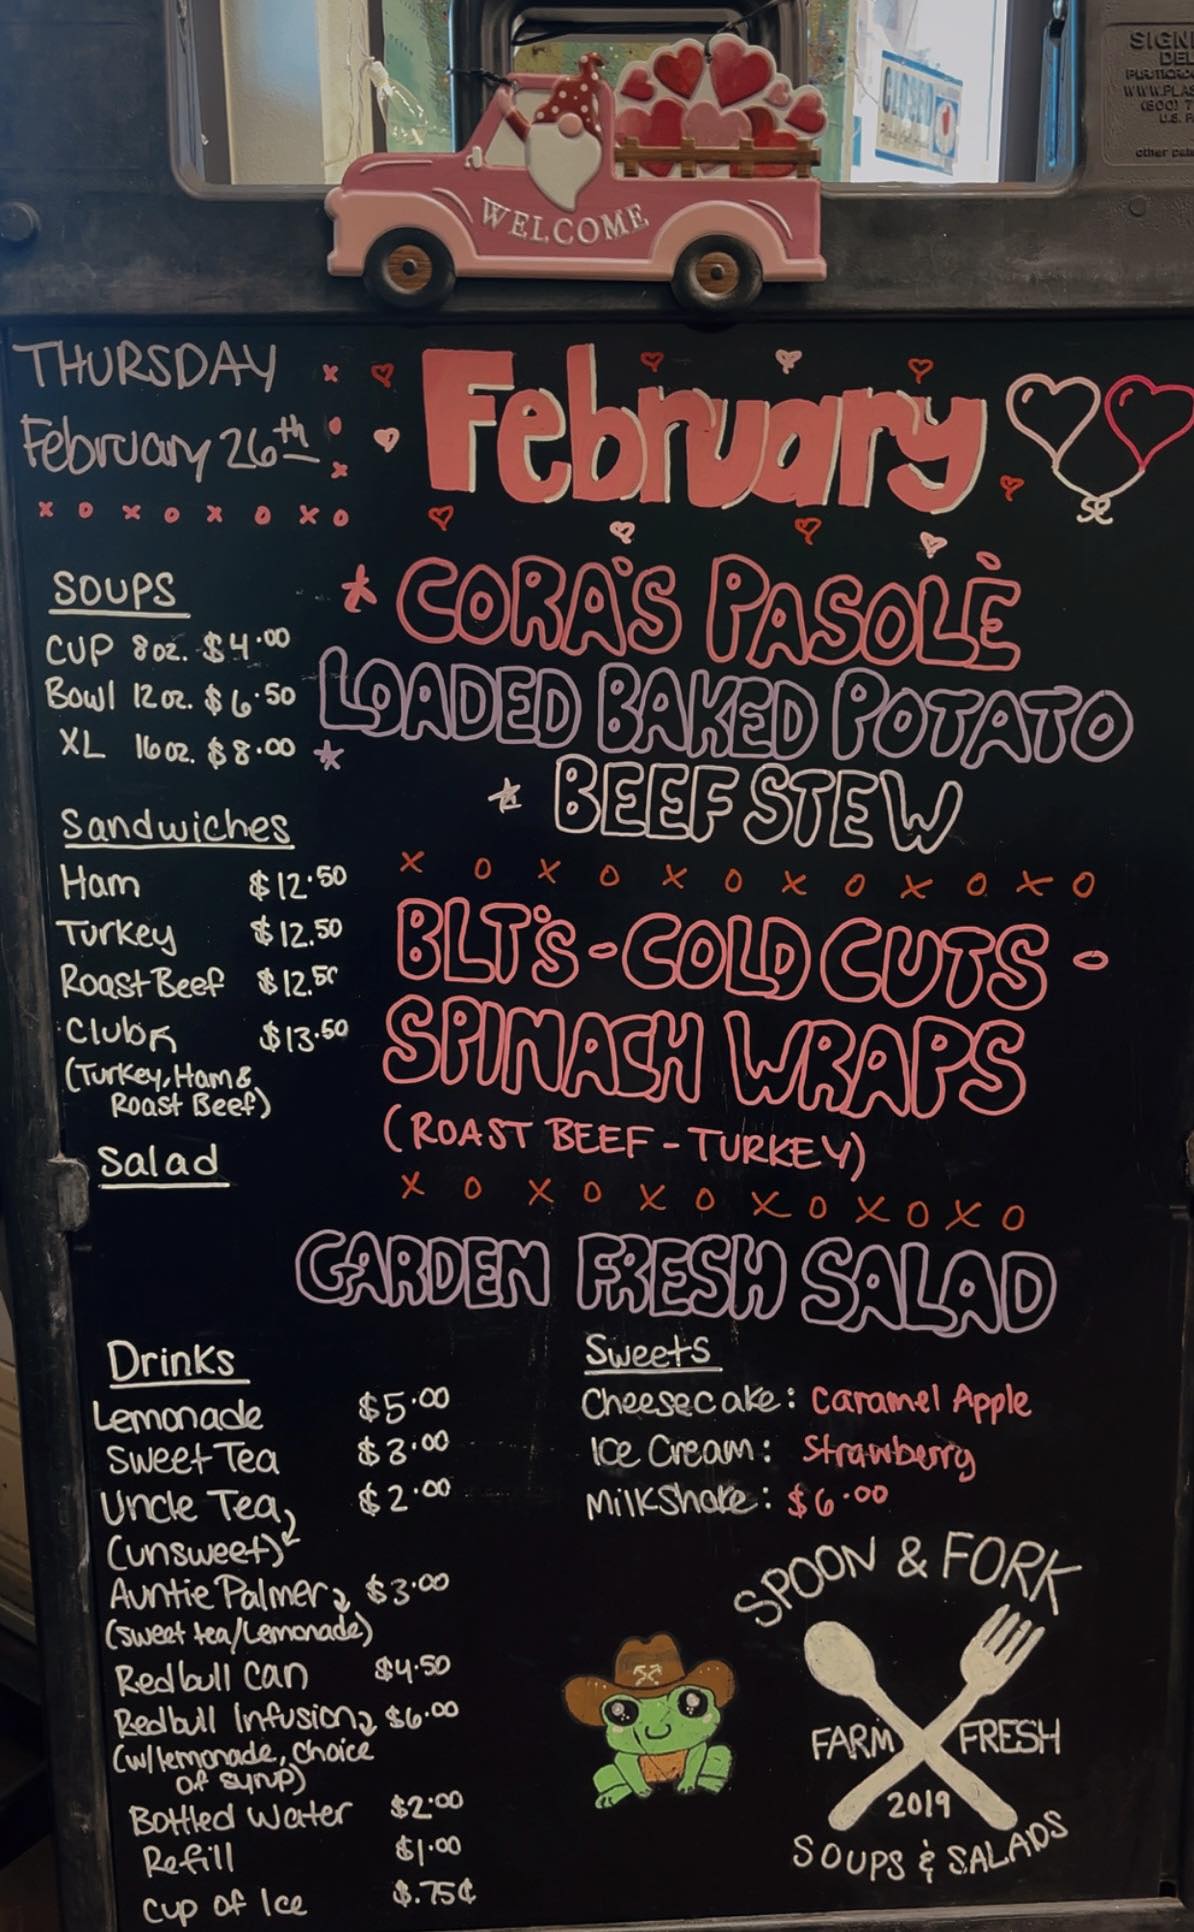 SIGNI
DEL
PLASTICADE
WWW.PLAS
(800) 7
U.S. PA
other pate
CLOSED
WELCOME
THURSDAY
February 26th
x o x o x o x o
February
SOUPS
CUP 8oz. $4.00
Bowl 12oz. $6.50
XL 16oz. $8.00
* CORA'S PASOLÈ
LOADED BAKED POTATO
* BEEF STEW
x o x o x o x o x o x o
Sandwiches
Ham $12.50
Turkey $12.50
Roast Beef $12.50
Club $13.50
(Turkey, Ham &
Roast Beef)
BLT'S - COLD CUTS -
SPINACH WRAPS
(ROAST BEEF - TURKEY)
x o x o x o x o x o x o
Salad
GARDEN FRESH SALAD
Drinks
Lemonade $5.00
Sweet Tea $3.00
Uncle Tea $2.00
(unsweet)
Auntie Palmer $3.00
(sweet tea/Lemonade)
Redbull Can $4.50
Redbull Infusion $6.00
(w/lemonade, choice
of syrup)
Bottled Water $2.00
Refill $1.00
Cup of Ice $.75¢
Sweets
Cheesecake: Caramel Apple
Ice Cream: Strawberry
Milkshake: $6.00
SPOON & FORK
FARM FRESH
2019
SOUPS & SALADS